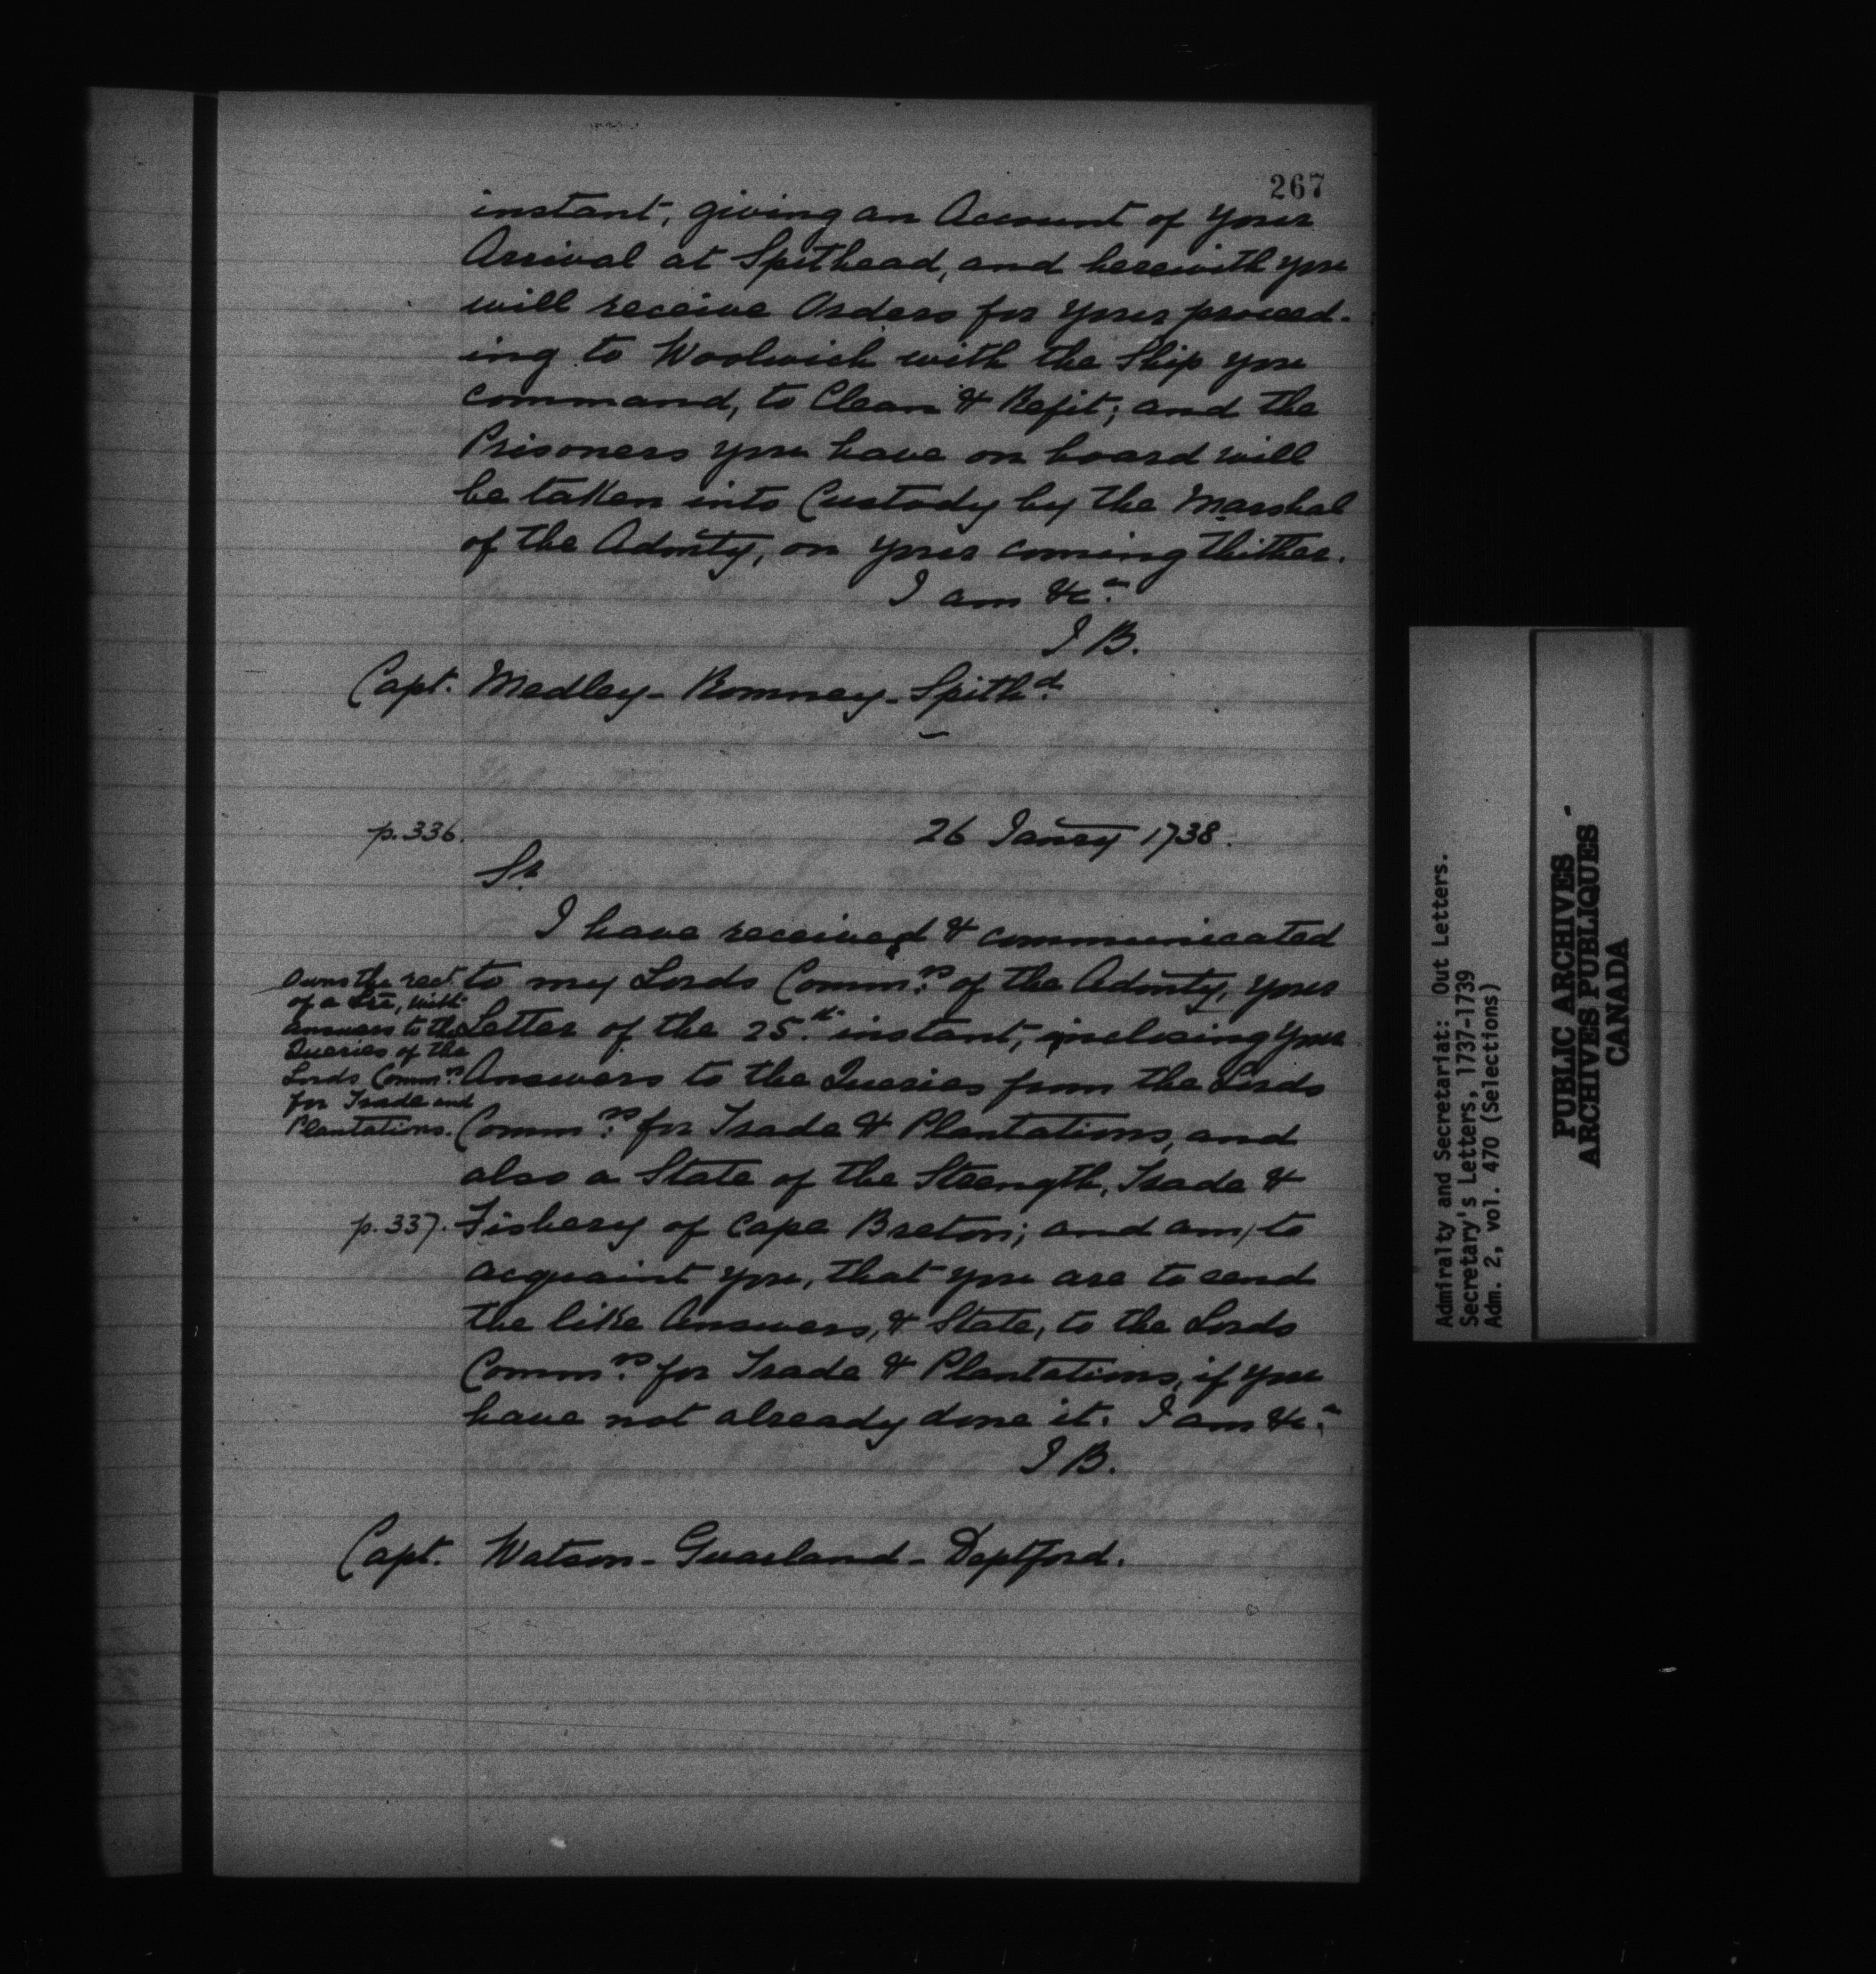 267
instant, giving an Account of your
Arrival at Spithead, and herewith you
will receive Orders for your proceed-
ing to Woolwich with the Ship you
command, to Clean & Refit; and the
Prisoners you have on board will
be taken into Custody by the Marshal
of the Admty, on your coming thither.
I am &c.a
J B.
Capt. Medley - Romney - Spithd.
p. 336.
26 Janry 1738.
Sr
I have received & communicated
to my Lords Commrs. of the Admty, your
Letter of the 25.th instant, inclosing your
Answers to the Queries from the Lords
Commrs. for Trade & Plantations, and
also a State of the Strength, Trade &
p. 337. Fishery of Cape Breton; and am, to
acquaint you, that you are to send
the like Answers, & State, to the Lords
Commrs. for Trade & Plantations, if you
have not already done it. I am &c.a
J B.
Owns the rect.
of a Lre, with
answers to the
Queries of the
Lords Commrs.
for Trade and
Plantations.
Capt. Watson - Guarland - Deptford.
Admiralty and Secretariat: Out Letters.
Secretary's Letters, 1737-1739
Adm. 2, vol. 470 (Selections)
PUBLIC ARCHIVES
ARCHIVES PUBLIQUES
CANADA